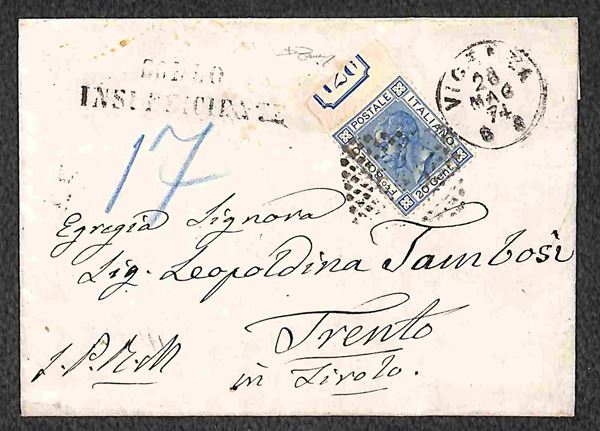 BOLLO
INSUFFICIENTE
17
20
POSTALE ITALIANO
FCO BOLLO 20 Cent
VICENZA
28
MAG
74
6 S
Egregia Signora
Sig. Leopoldina Tambosi
Trento
in Tirolo.